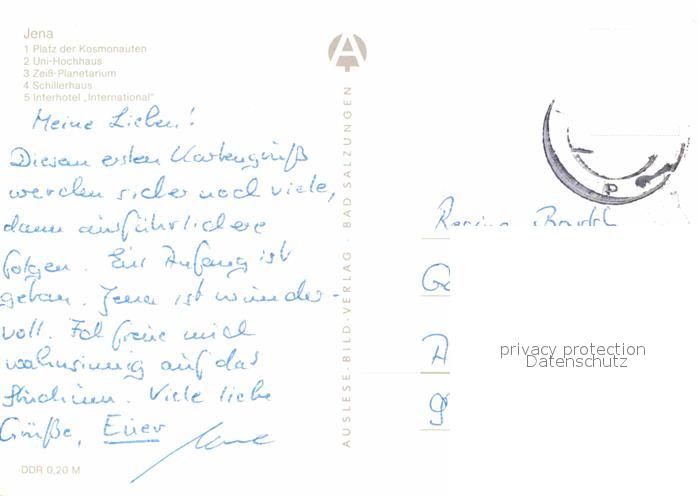 Jena
1 Platz der Kosmonauten
2 Uni-Hochhaus
3 Zeiß-Planetarium
4 Schillerhaus
5 Interhotel „International"
Meine Lieben!
Diesem ersten Kartengruß
werden sicher noch viele,
dann ausführlichere
folgen. Ein Anfang ist
getan. Jena ist wunder-
voll. Ich freue mich
wahnsinnig auf das
Studium. Viele liebe
Grüße, Euer
DDR 0,20 M
AUSLESE-BILD-VERLAG · BAD SALZUNGEN
A
P
privacy protection
Datenschutz